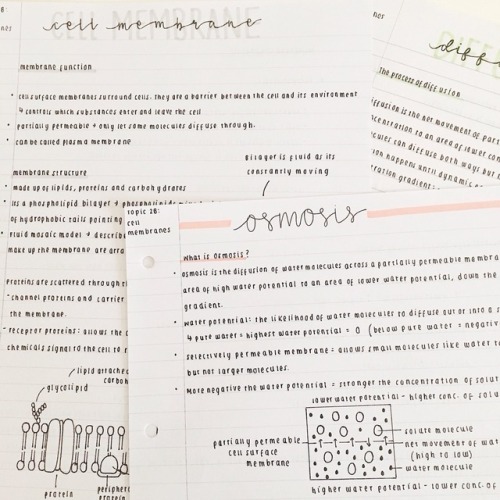 cell membrane
CELL MEMBRANE
membrane function
• cell surface membranes surround cells. they are a barrier between the cell and its environment
& controls which substances enter and leave the cell
• partially permeable → only let some molecules diffuse through.
• can be called plasma membrane
membrane structure
• made up of lipids, proteins and carbohydrates
• its a phospholipid bilayer →
of hydrophobic tails pointing
• fluid mosaic model →
make up the membrane are
Bilayer is fluid as its
constantly moving
proteins are scattered through
channel proteins and carrier
the membrane.
- receptor proteins: allows the
chemicals signal to the cell
lipid
glycolipid
protein
diff
DIFF
The process of diffusion
diffusion is the net movement of
to an area of lower
can diffuse both ways but
happen until dynamic
gradient
topic 2B:
cell
membranes
osmosis
what is osmosis?
• osmosis is the diffusion of water molecules across a partially permeable
area of high water potential to an area of lower water potential, down the
gradient.
• water potential: the likelihood of water molecules to diffuse out or into a
& pure water = highest water potential = 0 (below pure water =
• selectively permeable membrane: allows small molecules like water
but not larger molecules.
• more negative the water potential = stronger the concentration of
lower water potential - higher conc. of
partially permeable
cell surface
membrane
solute molecule
net movement of
(high to low)
water molecule
higher water potential - lower conc. of